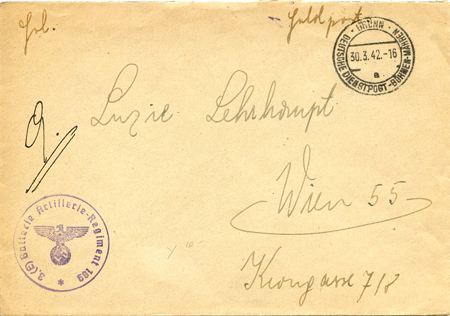 Feldpost
BRÜNN
DEUTSCHE DIENSTPOST-BÖHMEN-MÄHREN
30.3.42.-16
a
Luzie Lehrhaupt
Wien 55
Krongasse 7/8
3.(E) Batterie Artillerie-Regiment 109